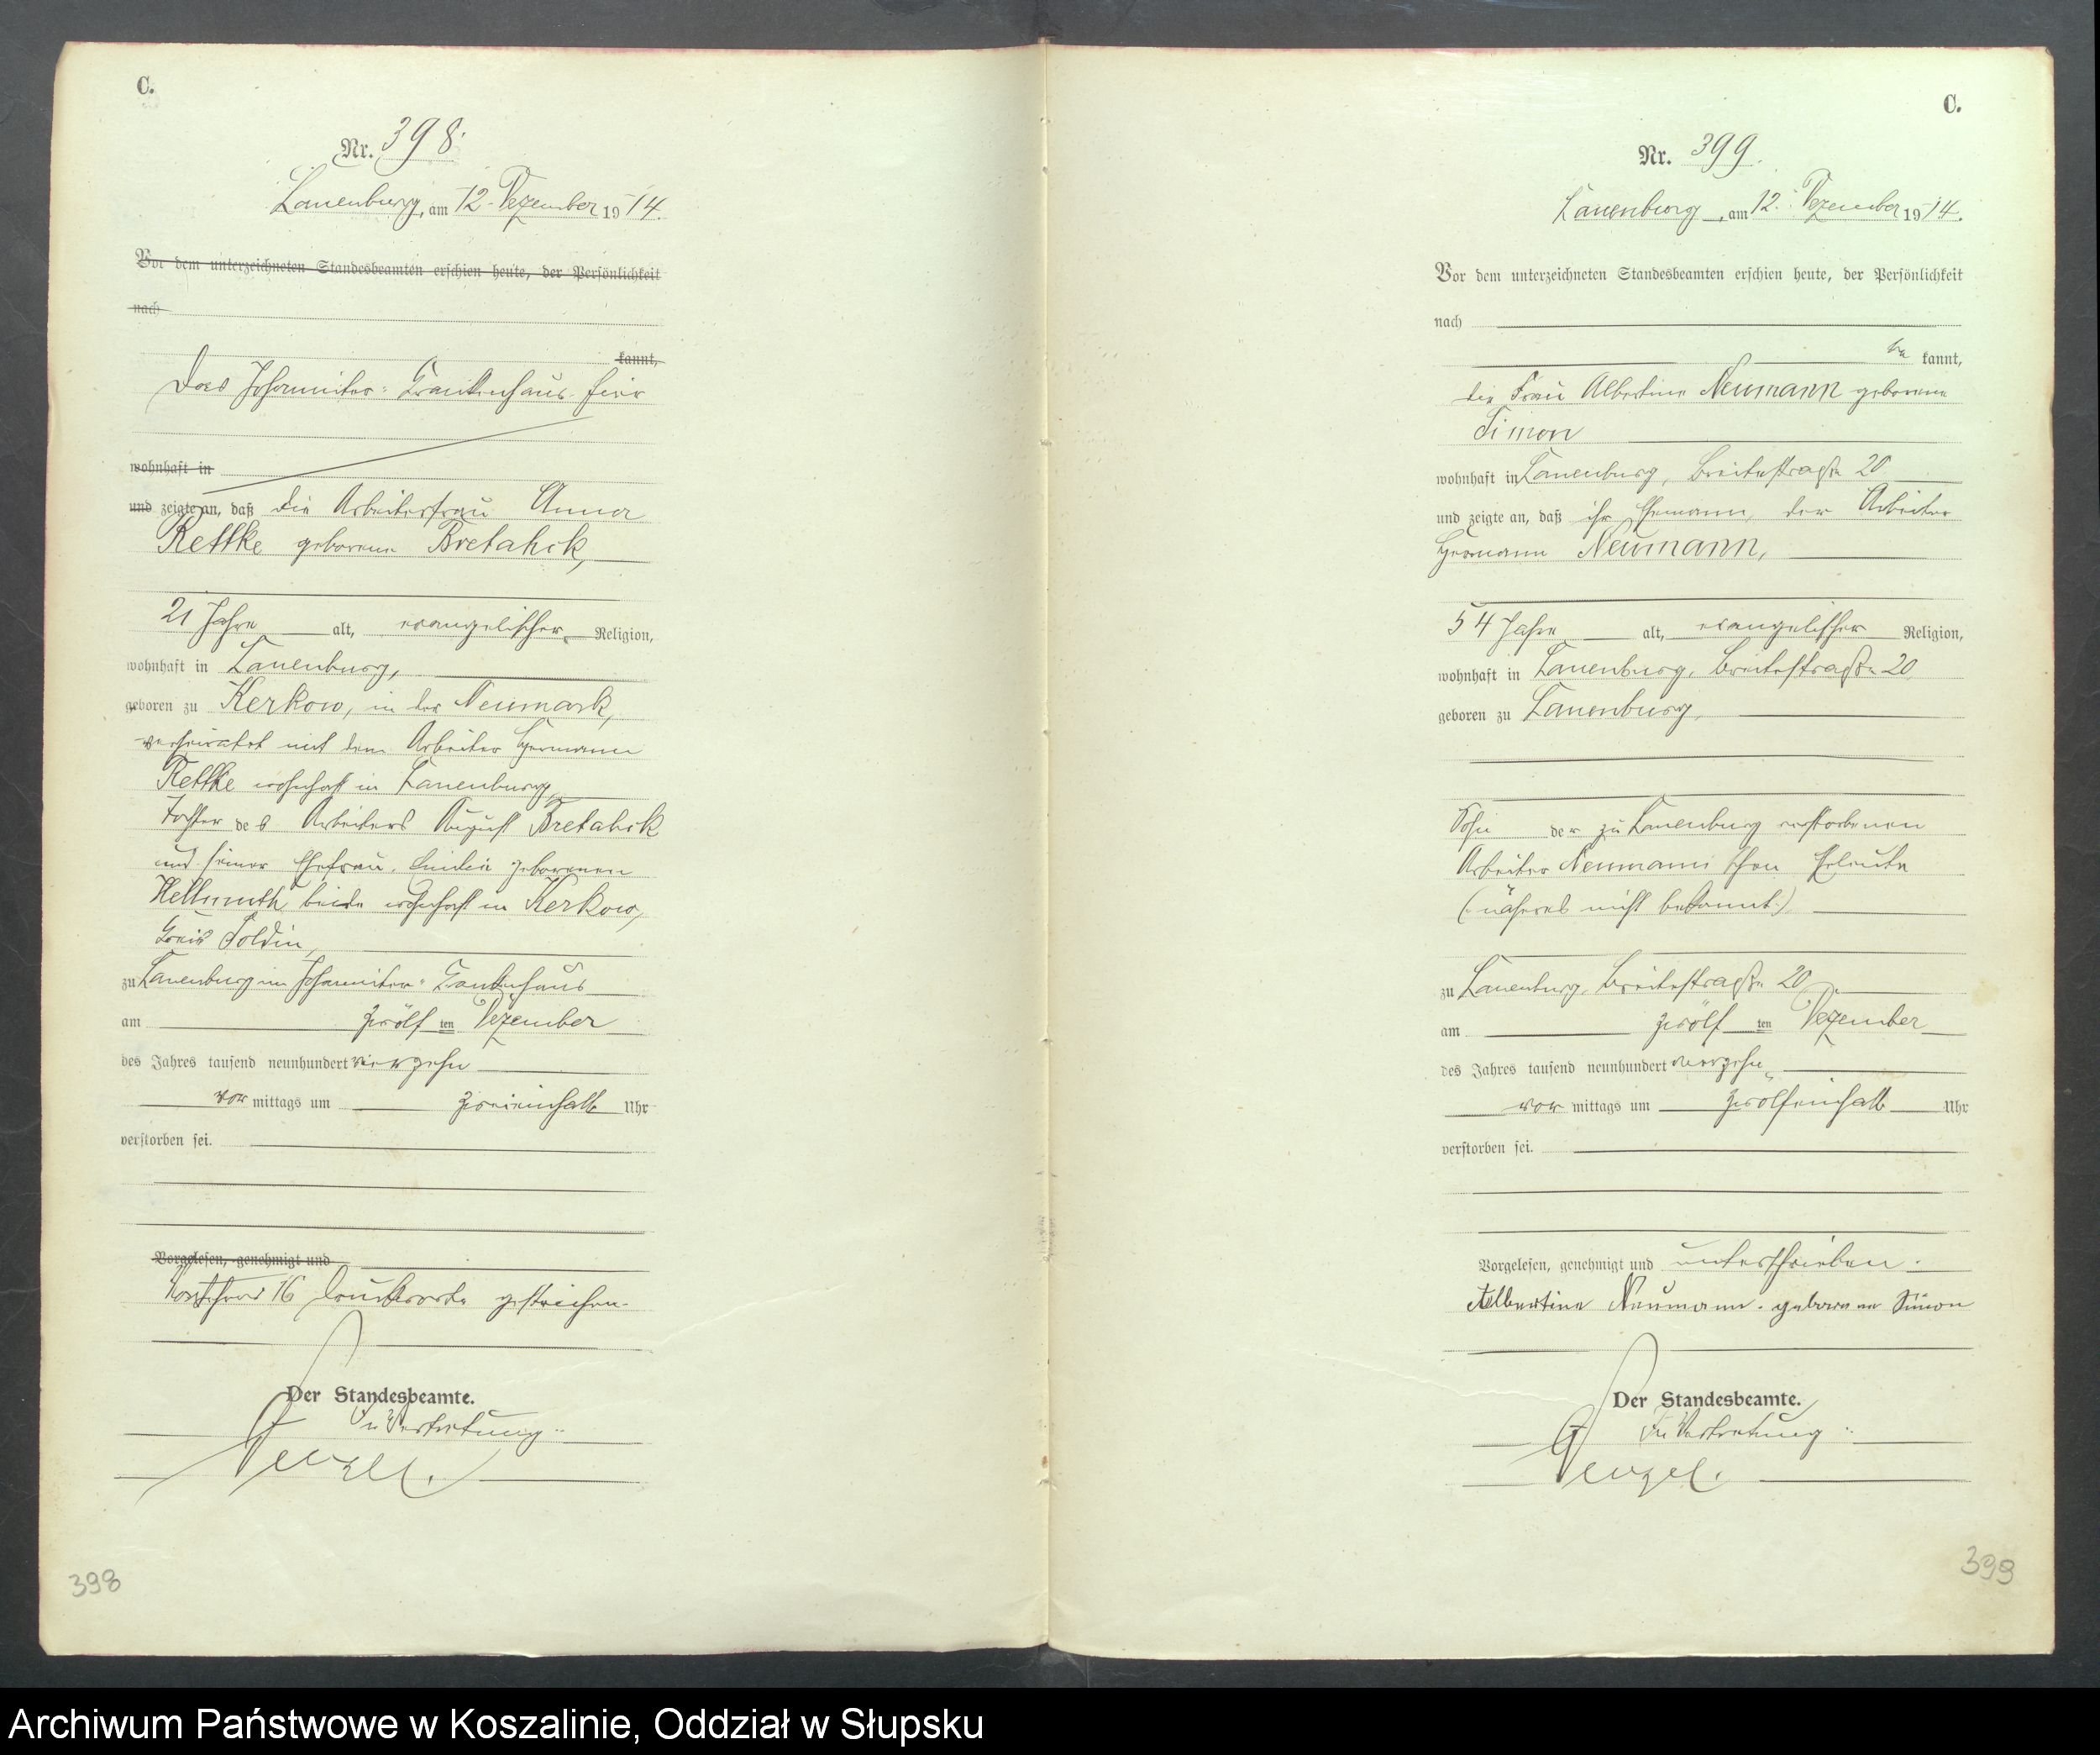 C.
Nr. 398.
Lauenburg, am 12. Dezember 1914.
Vor dem unterzeichneten Standesbeamten erschien heute, der Persönlichkeit
nach
kannt,
Das Johanniter-Krankenhaus hier
wohnhaft in
und zeigte an, daß die Arbeiterfrau Anna
Rettke geborene
21 Jahre alt, evangelischer Religion,
wohnhaft in Lauenburg,
geboren zu Kerkow, in der Neumark,
verheiratet mit dem Arbeiter Hermann
Rettke wohnhaft in Lauenburg,
Tochter des Arbeiters August
und seiner Ehefrau, geborenen
Hellmuth beide wohnhaft in Kerkow,
Kreis Soldin,
zu Lauenburg im Johanniter-Krankenhaus
am zwölf ten Dezember
des Jahres tausend neunhundert vierzehn
vor mittags um zweieinhalb Uhr
verstorben sei.
Vorgelesen, genehmigt und
Vorstehend 16 Druckworte gestrichen.
Der Standesbeamte.
In Vertretung:
Wenzel.
398
C.
Nr. 399.
Lauenburg, am 12. Dezember 1914.
Vor dem unterzeichneten Standesbeamten erschien heute, der Persönlichkeit
nach
be kannt,
die Frau Albertine Neumann geborene
Simon
wohnhaft in Lauenburg, Breitestraße 20
und zeigte an, daß ihr Ehemann, der Arbeiter
Hermann Neumann,
54 Jahre alt, evangelischer Religion,
wohnhaft in Lauenburg, Breitestraße 20
geboren zu Lauenburg,
Sohn der zu Lauenburg verstorbenen
Arbeiter Neumann'schen Eheleute
(näheres nicht bekannt)
zu Lauenburg, Breitestraße 20
am zwölf ten Dezember
des Jahres tausend neunhundert vierzehn
vor mittags um zwölfeinhalb Uhr
verstorben sei.
Vorgelesen, genehmigt und unterschrieben.
Albertine Neumann. geborene Simon
Der Standesbeamte.
In Vertretung:
Wenzel.
399
Archiwum Państwowe w Koszalinie, Oddział w Słupsku